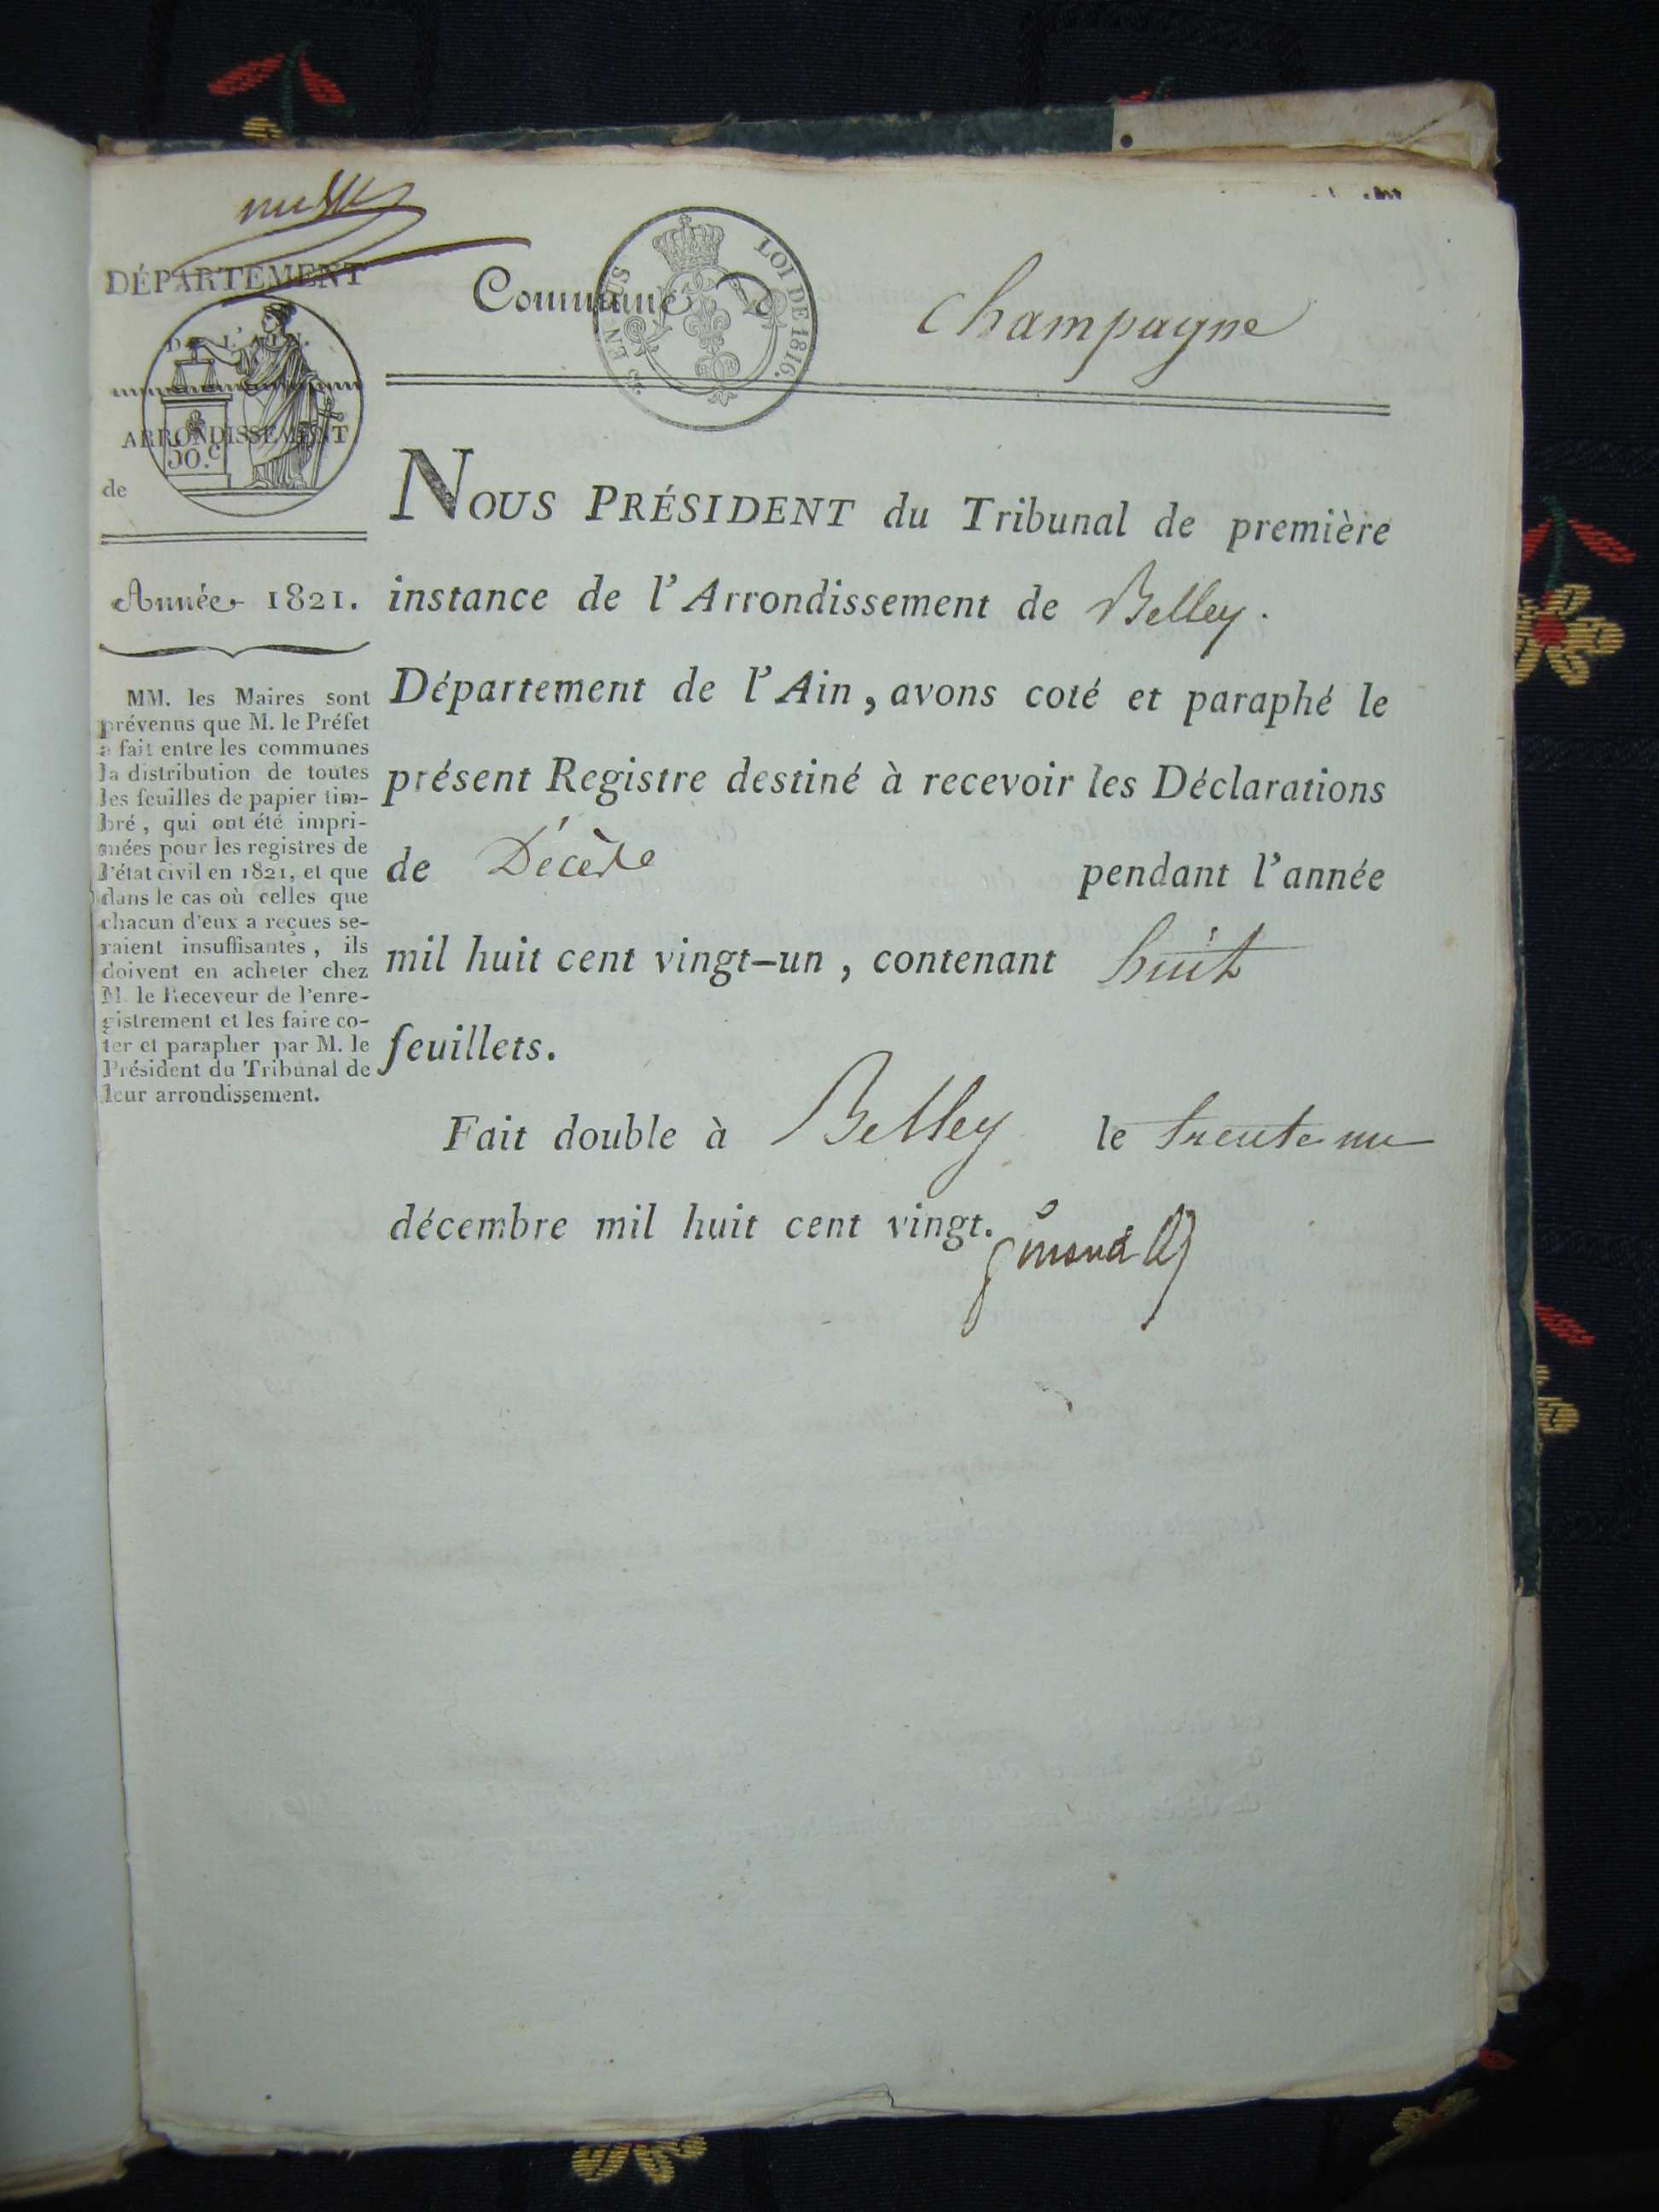 DÉPARTEMENT
DE L'AIN.
ARRONDISSEMENT
50.c
de
Année 1821.
MM. les Maires sont
prévenus que M. le Préfet
a fait entre les communes
la distribution de toutes
les feuilles de papier tim-
bré, qui ont été impri-
mées pour les registres de
l'état civil en 1821, et que
dans le cas où celles que
chacun d'eux a reçues se-
raient insuffisantes, ils
doivent en acheter chez
M. le Receveur de l'enre-
gistrement et les faire co-
ter et parapher par M. le
Président du Tribunal de
leur arrondissement.
Commune d Champagne
EN SUS
LOI DE 1816.
NOUS PRÉSIDENT du Tribunal de première
instance de l'Arrondissement de Belley.
Département de l'Ain, avons coté et paraphé le
présent Registre destiné à recevoir les Déclarations
de Décès pendant l'année
mil huit cent vingt-un, contenant huit
feuillets.
Fait double à Belley le trente un
décembre mil huit cent vingt.